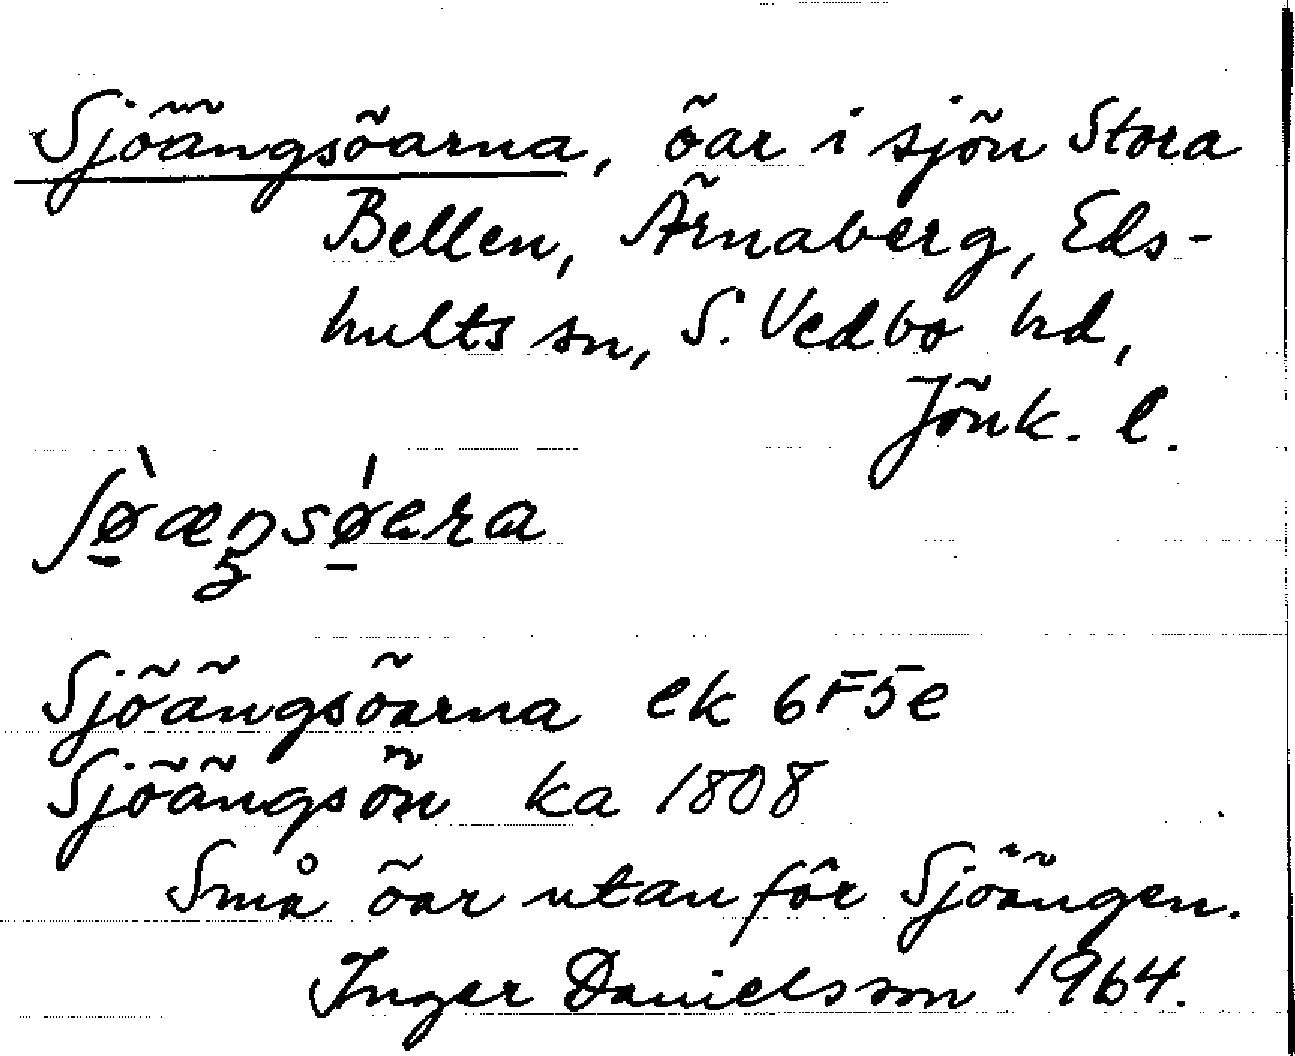 Sjöängsöarna, öar i sjön Stora
Bellen, Ärnaberg, Eds-
hults sn, S. Vedbo hd,
Jönk. l.
ʃø̱̀æŋsǿ̱ɐra
Sjöängsöarna ek 6F5e
Sjöängsön ka 1808
Små öar utanför Sjöängen.
Inger Danielsson 1964.